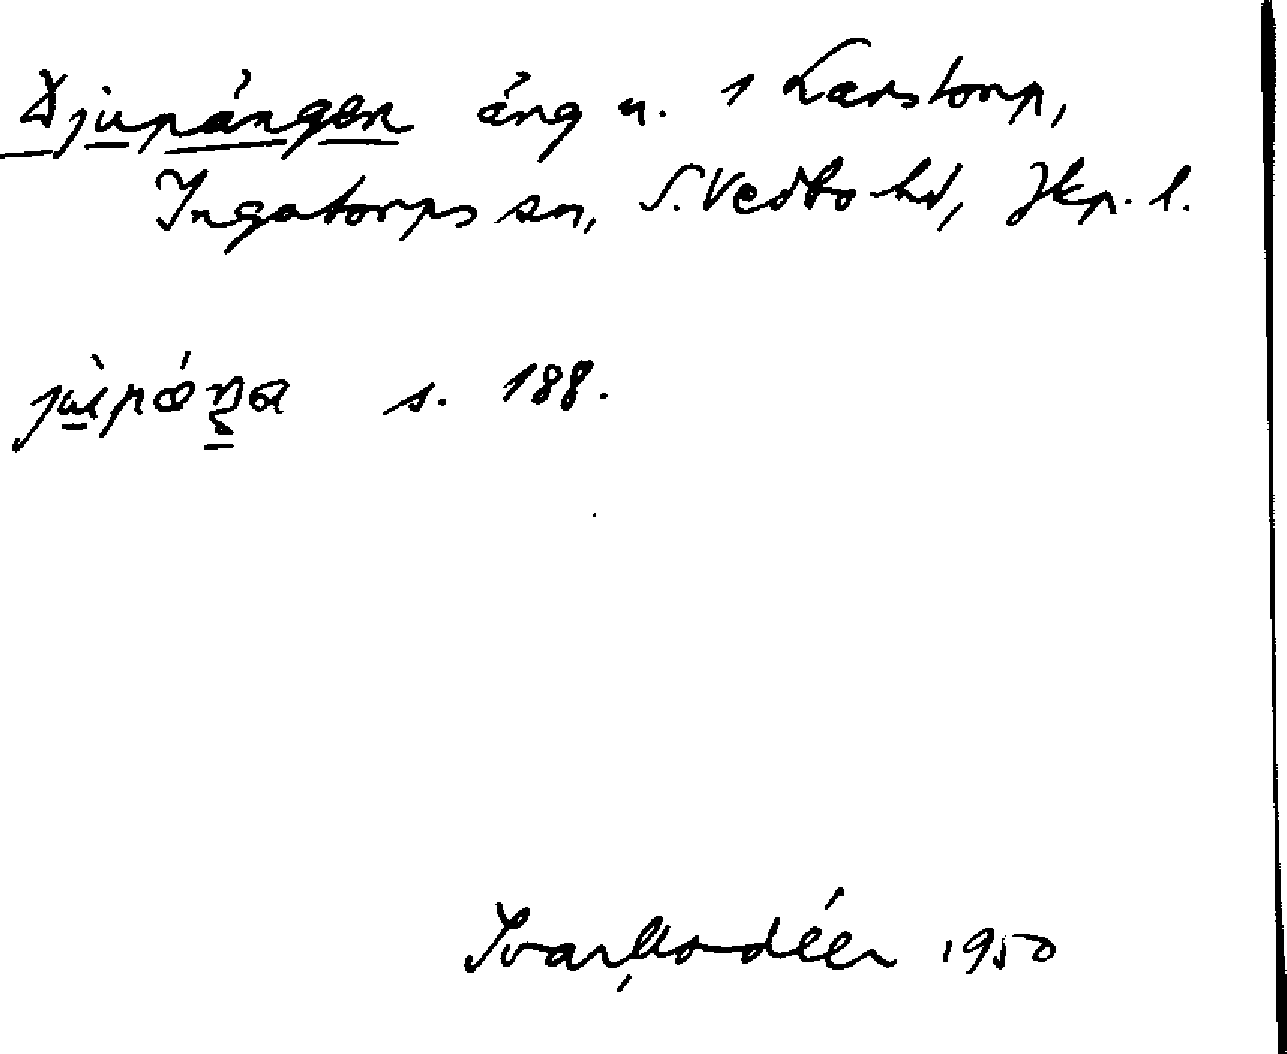 Djupängen äng u. 1 Larstorp,
Ingatorps sn, S. Vedbo hd, Jkp. l.
s. 188.
Ivar Modéer 1950